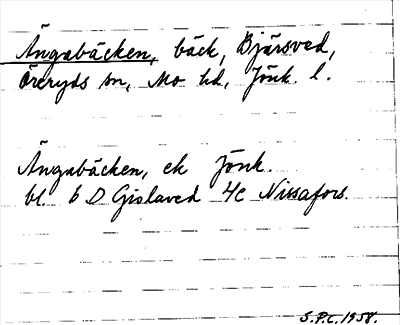 Ängabäcken, bäck, Bjärsved,
Öreryds sn, Mo hd, Jönk. l.
Ängabäcken, ek Jönk.
bl. 6 D Gislaved 4c Nissafors.
S.P.C. 1958.